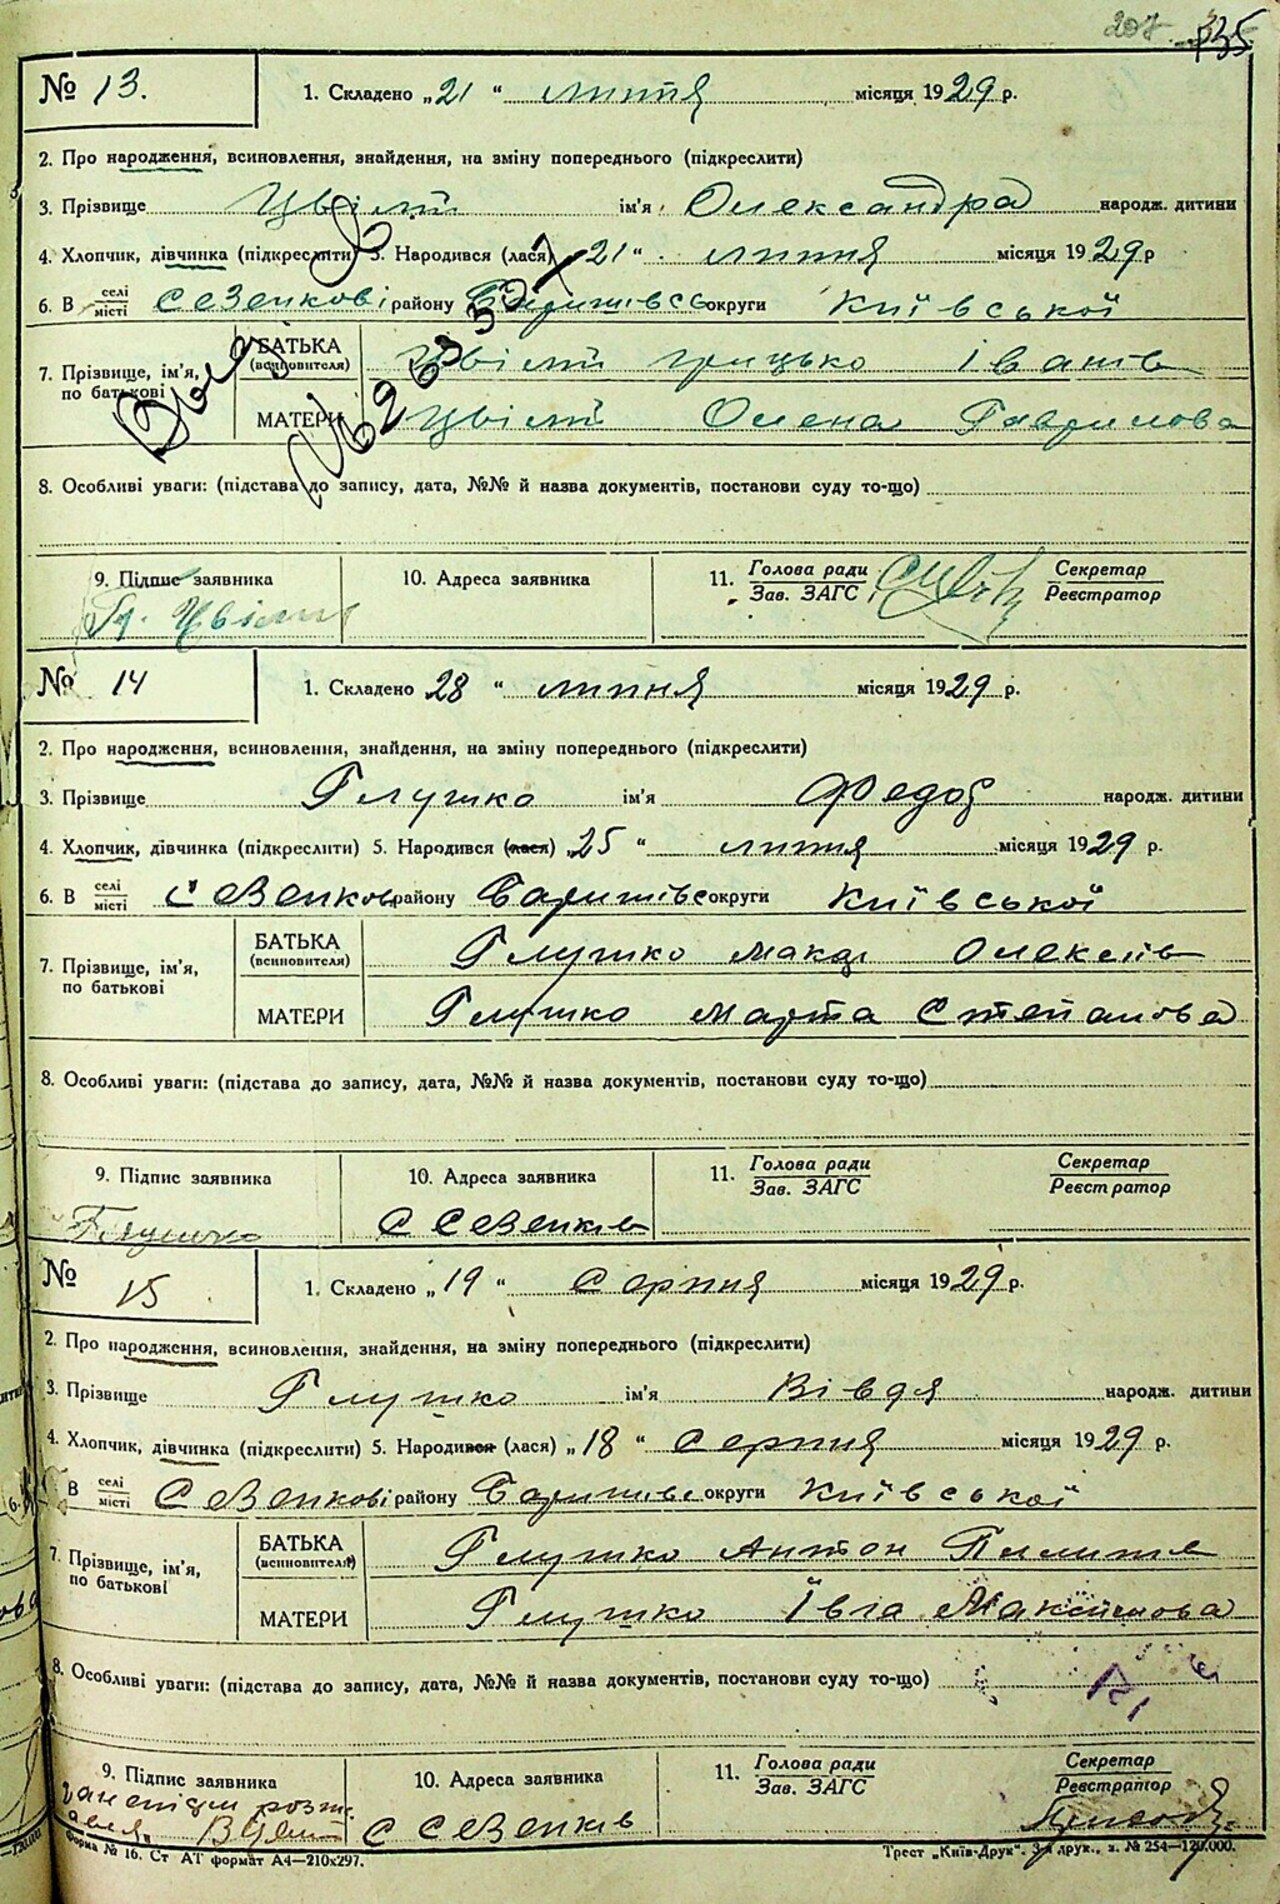 207 135
№ 13. 1. Складено „21“ липня місяця 1929 р.
2. Про народження, всиновлення, знайдення, на зміну попереднього (підкреслити)
3. Прізвище Цвілій ім'я Олександра народж. дитини
4. Хлопчик, дівчинка (підкреслити) 5. Народився (лася) „21“ липня місяця 1929 р
6. В селі/місті Сезенкові району Баришівсь округи Київської
7. Прізвище, ім'я, по батькові
БАТЬКА (всиновителя) Цвілій Грицько Іванів
МАТЕРИ Цвілій Олена Гаврилова
8. Особливі уваги: (підстава до запису, дата, №№ й назва документів, постанови суду то-що)
9. Підпис заявника 10. Адреса заявника 11. Голова ради/Зав. ЗАГС Секретар/Реєстратор
Гр. Цвілий
№ 14 1. Складено 28 “ липня місяця 1929 р.
2. Про народження, всиновлення, знайдення, на зміну попереднього (підкреслити)
3. Прізвище Глушко ім'я Федор народж. дитини
4. Хлопчик, дівчинка (підкреслити) 5. Народився (лася) „25“ липня місяця 1929 р.
6. В селі/місті Сезенков району Баришівс округи Київської
7. Прізвище, ім'я, по батькові
БАТЬКА (всиновителя) Глушко Олексіїв
МАТЕРИ Глушко Марта Степанова
8. Особливі уваги: (підстава до запису, дата, №№ й назва документів, постанови суду то-що)
9. Підпис заявника 10. Адреса заявника 11. Голова ради/Зав. ЗАГС Секретар/Реєстратор
Глушко С Сезенків
№ 15 1. Складено „19“ Серпня місяця 1929 р.
2. Про народження, всиновлення, знайдення, на зміну попереднього (підкреслити)
3. Прізвище Глушко ім'я Вівдя народж. дитини
4. Хлопчик, дівчинка (підкреслити) 5. Народився (лася) „18“ Серпня місяця 1929 р.
В селі/місті Сезенкові району Баришівс округи Київської
7. Прізвище, ім'я, по батькові
БАТЬКА (всиновителя) Глушко Антон Пилипів
МАТЕРИ Глушко Ївга Максимова
8. Особливі уваги: (підстава до запису, дата, №№ й назва документів, постанови суду то-що)
9. Підпис заявника 10. Адреса заявника 11. Голова ради/Зав. ЗАГС Секретар/Реєстратор
С Сезенків
Форма № 16. Ст АТ формат А4—210х297. Трест „Київ-Друк“. 3-я друк., з. № 254—120.000.